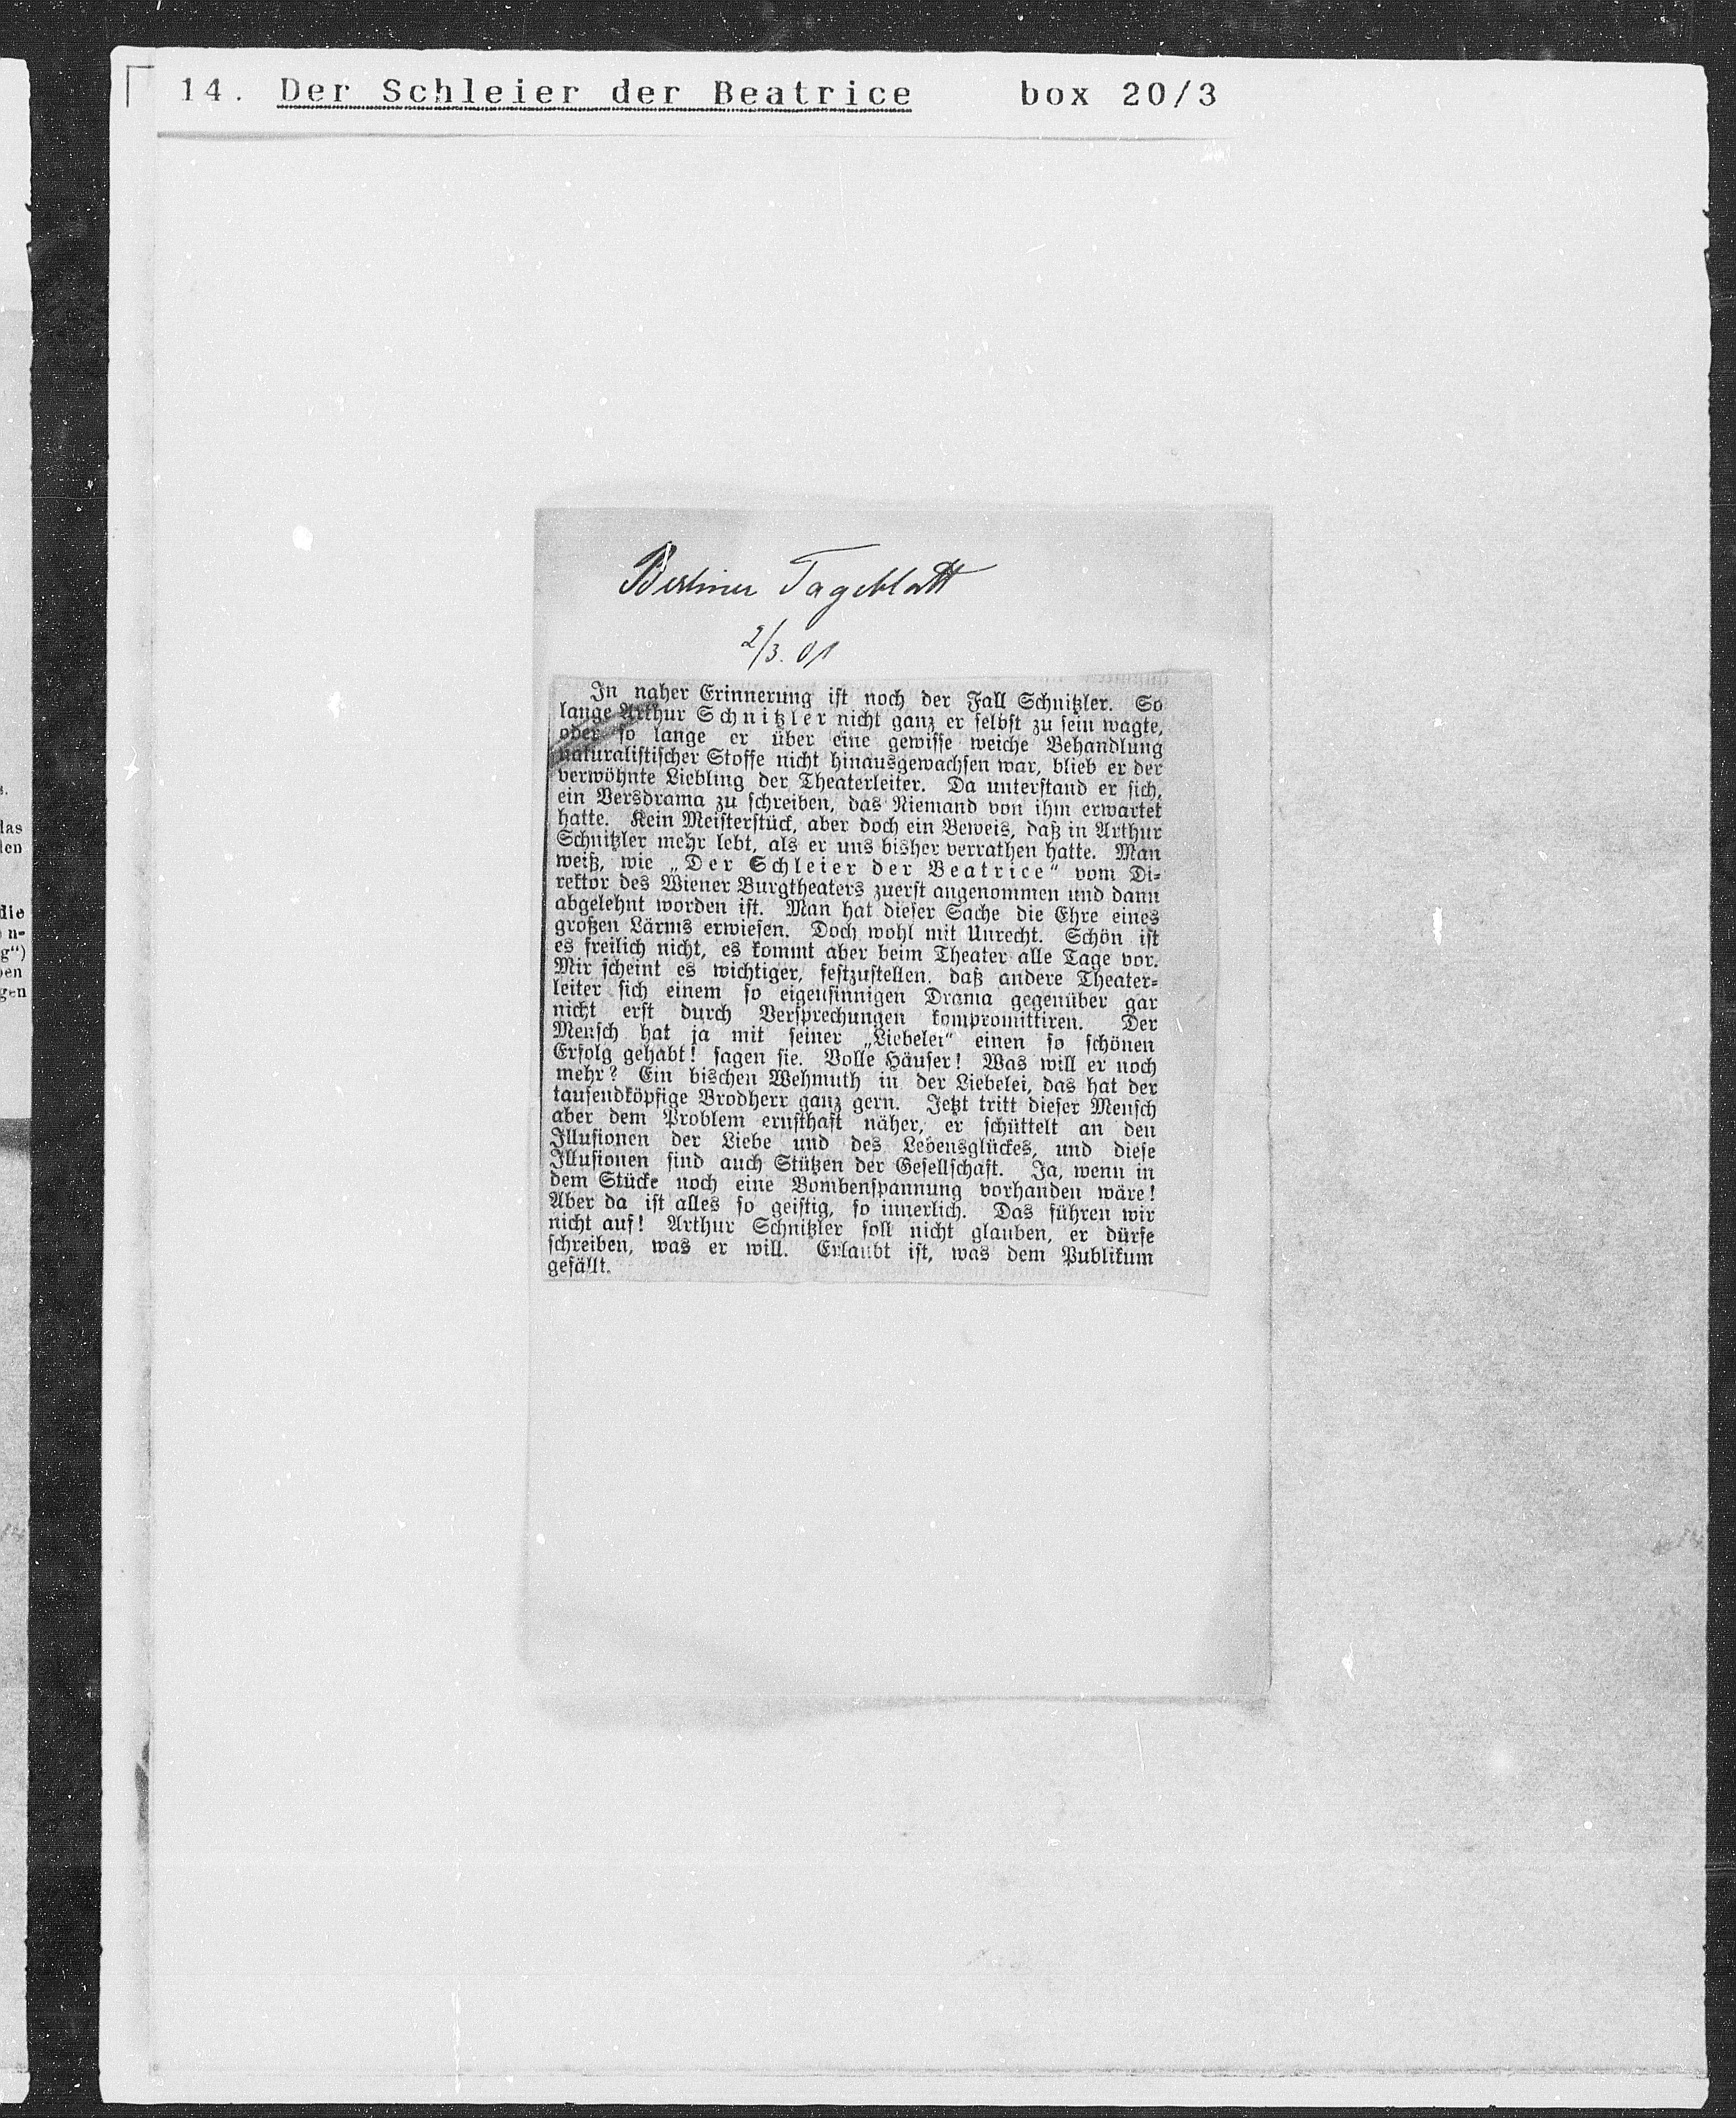 14. Der Schleier der Beatrice box 20/3
Berliner Tageblatt
2/3. 01
In naher Erinnerung ist noch der Fall Schnitzler. So
lange Arthur Schnitzler nicht ganz er selbst zu sein wagte,
oder so lange er über eine gewisse weiche Behandlung
naturalistischer Stoffe nicht hinausgewachsen war, blieb er der
verwöhnte Liebling der Theaterleiter. Da unterstand er sich,
ein Versdrama zu schreiben, das Niemand von ihm erwartet
hatte. Kein Meisterstück, aber doch ein Beweis, daß in Arthur
Schnitzler mehr lebt, als er uns bisher verrathen hatte. Man
weiß, wie „Der Schleier der Beatrice“ vom Di-
rektor des Wiener Burgtheaters zuerst angenommen und dann
abgelehnt worden ist. Man hat dieser Sache die Ehre eines
großen Lärms erwiesen. Doch wohl mit Unrecht. Schön ist
es freilich nicht, es kommt aber beim Theater alle Tage vor.
Mir scheint es wichtiger, festzustellen, daß andere Theater-
leiter sich einem so eigensinnigen Drama gegenüber gar
nicht erst durch Versprechungen kompromittiren. Der
Mensch hat ja mit seiner „Liebelei“ einen so schönen
Erfolg gehabt! sagen sie. Volle Häuser! Was will er noch
mehr? Ein bischen Wehmuth in der Liebelei, das hat der
tausendköpfige Brodherr ganz gern. Jetzt tritt dieser Mensch
aber dem Problem ernsthaft näher, er schüttelt an den
Illusionen der Liebe und des Lebensglückes, und diese
Illusionen sind auch Stützen der Gesellschaft. Ja, wenn in
dem Stücke noch eine Bombenspannung vorhanden wäre!
Aber da ist alles so geistig, so innerlich. Das führen wir
nicht auf! Arthur Schnitzler soll nicht glauben, er dürfe
schreiben, was er will. Erlaubt ist, was dem Publikum
gefällt.